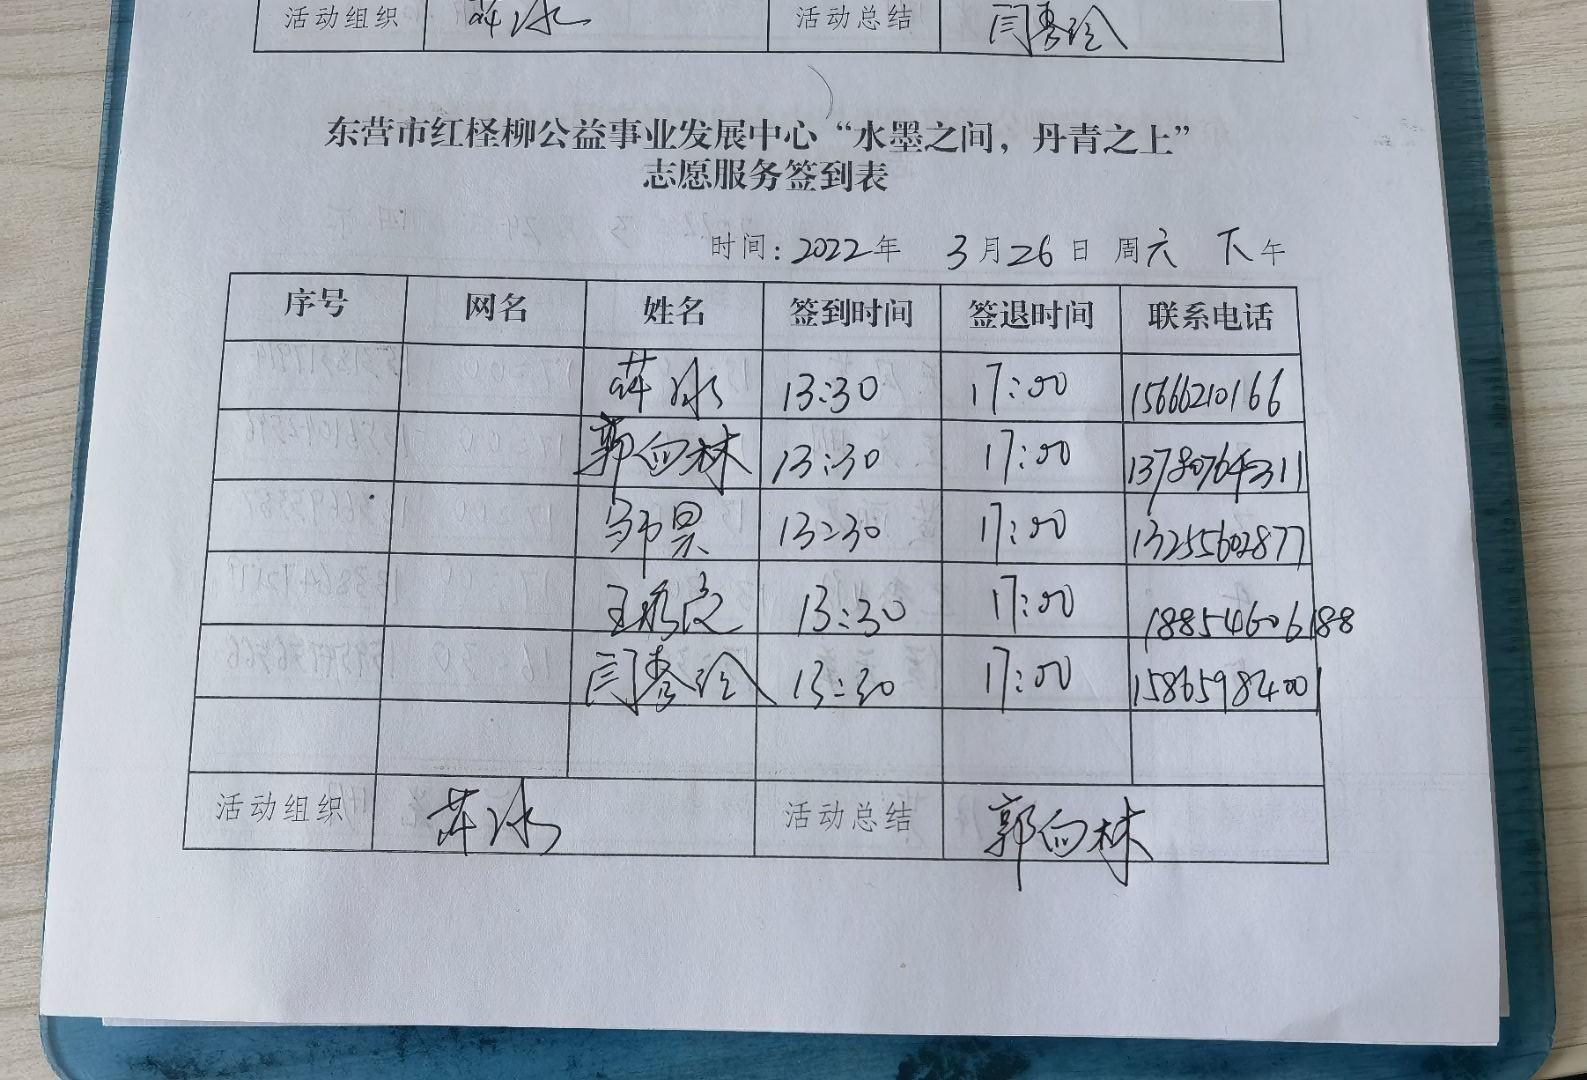 活动组织 薛冰 活动总结 闫秀玲
东营市红柽柳公益事业发展中心“水墨之间，丹青之上”
志愿服务签到表
时间：2022年 3月26日 周六 下午
序号 网名 姓名 签到时间 签退时间 联系电话
薛冰 13:30 17:00 15666210166
郭向林 13:30 17:00 13780764311
13:30 17:00 13255602877
13:30 17:00 18854606188
闫秀玲 13:30 17:00 15865984001
活动组织 薛冰 活动总结 郭向林